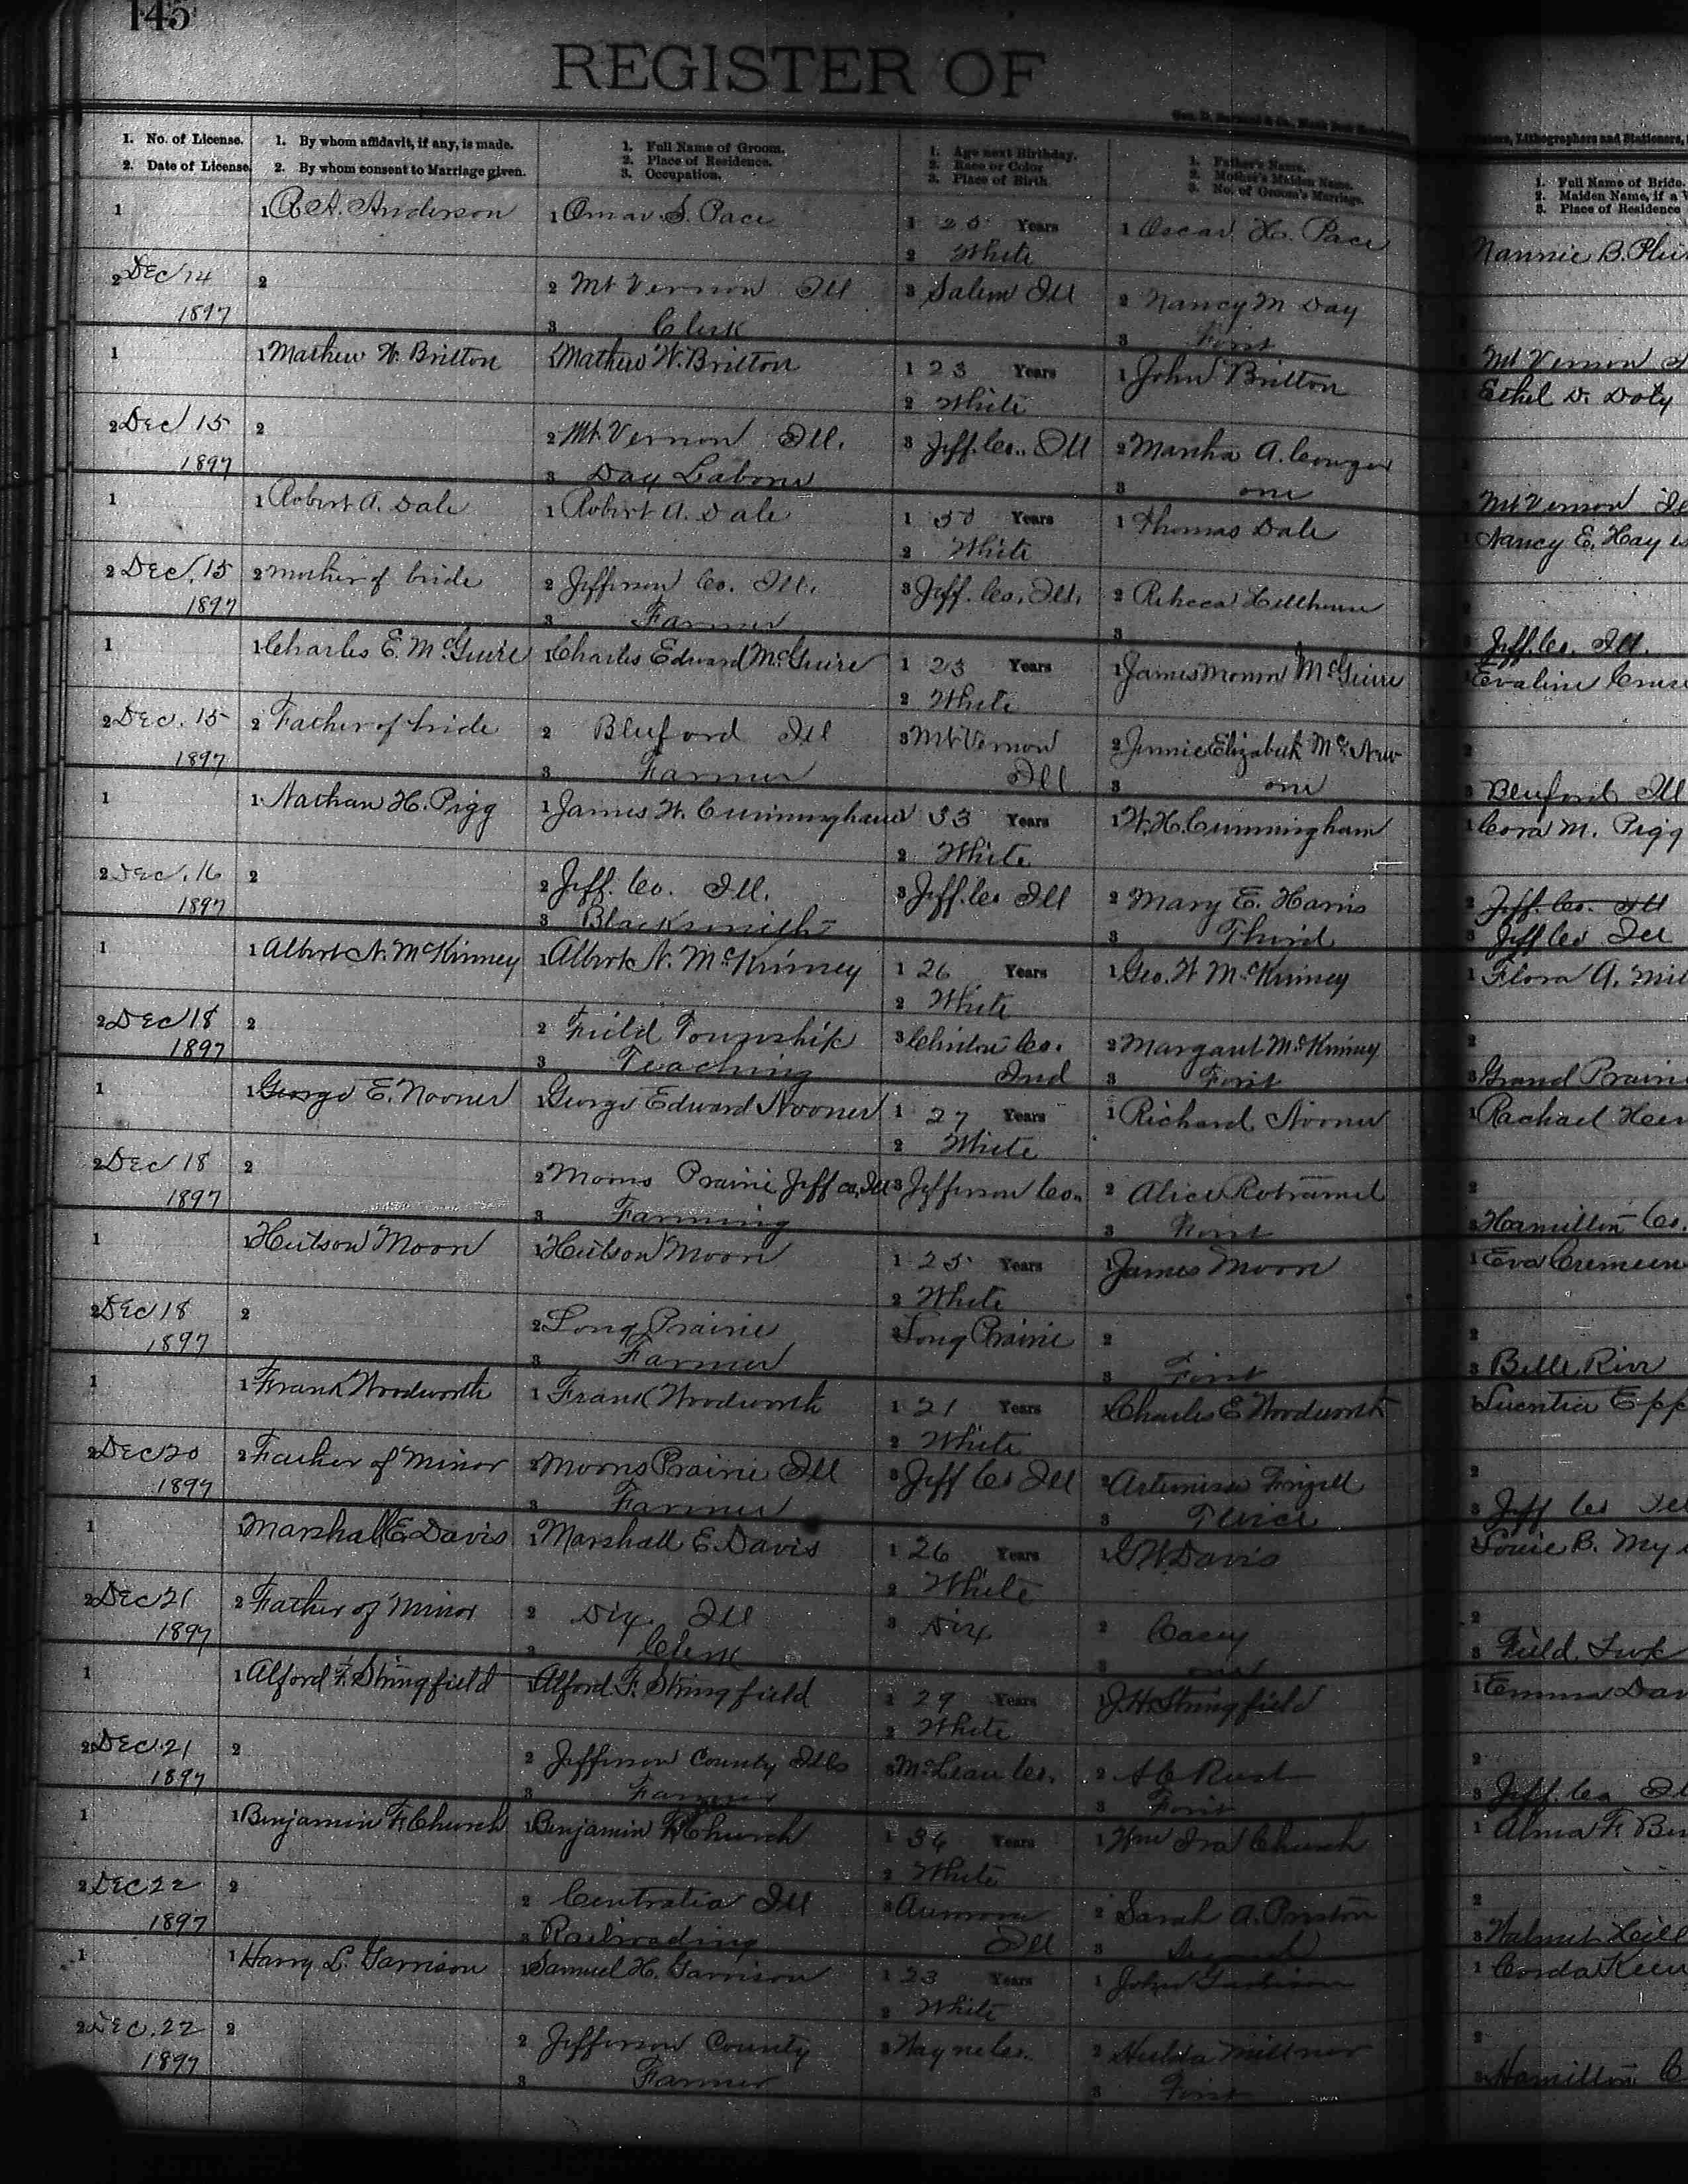 145
REGISTER OF
1. No. of License.
2. Date of License.
1. By whom affidavit, if any, is made.
2. By whom consent to Marriage given.
1. Full Name of Groom.
2. Place of Residence.
3. Occupation.
1. Age next Birthday.
2. Race or Color
3. Place of Birth.
1. Father's Name.
2. Mother's Maiden Name.
3. No. of Groom's Marriage.
Lithographers and Stationers,
1. Full Name of Bride.
2. Maiden Name, if a
3. Place of Residence
1 1 A. Anderson 1 Omar S. Pace 1 Years 1 Oscar H. Pace Nannie B.
2 White
2 Dec 14 2 2 Mt Vernon Ill 3 Salem Ill 2 Nancy M Day
1897 3 Clerk 3 First Mt Vernon
1 1 Mathew W. Britton 1 Mathew W. Britton 1 23 Years 1 John Britton Ethel D. Doty
2 White
2 Dec 15 2 2 Mt Vernon Ill. 3 Jeff. Co. Ill 2 Martha A.
1897 3 Day Laborer 3 one Mt Vernon
1 1 Robert A. Dale 1 Robert A. Dale 1 Years 1 Thomas Dale Nancy E. Hay
2 White
2 Dec. 15 2 mother of bride 2 Jefferson Co. Ill. 3 Jeff. Co. Ill. 2
1897 3 Farmer 3 Jeff. Co. Ill.
1 1 Charles E. McGuire 1 Charles Edward McGuire 1 23 Years 1 James Monroe McGuire Evaline
2 White
2 Dec. 15 2 Father of bride 2 Bluford Ill 3 Mt Vernon 2 Jennie Elizabeth
1897 3 Farmer Ill 3 one 3 Bluford Ill
1 1 Nathan H. Pigg 1 James W. Cunningham 33 Years 1 W. H. Cunningham 1 Cora M. Pigg
2 White
2 Dec. 16 2 2 Jeff. Co. Ill. 3 Jeff. Co Ill 2 Mary E. Harris 2 Jeff. Co. Ill
1897 3 Blacksmith 3 Third 3 Jeff Co Ill
1 1 Albert N. McKinney 1 Albert N. McKinney 1 26 Years 1 Geo. W McKinney 1 Flora A.
2 White
2 Dec 18 2 2 Field Township 3 Clinton Co. 2 Margaret McKinney 2
1897 3 Teaching Ind 3 First 3 Grand Prairie
1 1 George E. Nooner 1 George Edward Nooner 1 27 Years 1 Richard Nooner 1 Rachael
2 White
2 Dec 18 2 2 Moores Prairie Jeff co, Ill 3 Jefferson Co. 2 Alice Rotramel 2
1897 3 Farming 3 First 3 Hamilton Co.
1 1 Hutson Moon 1 Hutson Moon 1 25 Years 1 James Moon 1 Eva
2 White
2 Dec 18 2 2 Long Prairie 3 Long Prairie 2 2
1897 3 Farmer 3 First 3 Belle River
1 1 Frank Woodworth 1 Frank Woodworth 1 21 Years 1 Charles E Woodworth
2 White
2 Dec 20 2 Father of Minor 2 Moores Prairie Ill 3 Jeff Co Ill 2 2
1897 3 Farmer 3 Twice 3 Jeff Co
1 1 Marshall E Davis 1 Marshall E. Davis 1 26 Years 1 G W. Davis 1
2 White
2 Dec 21 2 Father of Minor 2 Dix Ill 3 Dix 2 Casey 2
1897 3 Clerk 3 3 Field Twp
1 1 Alford F. Stringfield 1 Alford F. Stringfield 1 29 Years 1 J. H. Stringfield 1 Emma
2 White
2 Dec 21 2 2 Jefferson County Ills 3 McLean Co. 2 Rust 2
1897 3 Farmer 3 First 3 Jeff. Co
1 1 Benjamin F. Church 1 Benjamin F. Church 1 Years 1 Wm Ira Church 1 Alma F.
2 White
2 Dec 22 2 2 Centralia Ill 3 Aurora 2 Sarah A. Preston 2
1897 3 Railroading Ill 3 Second 3 Walnut Hill
1 1 Harry L. Garrison 1 Samuel H. Garrison 1 23 Years 1 John Garrison 1
2 White
2 Dec. 22 2 2 Jefferson County 3 Wayne Co. 2 Hulda 2
1897 3 Farmer 3 First 3 Hamilton